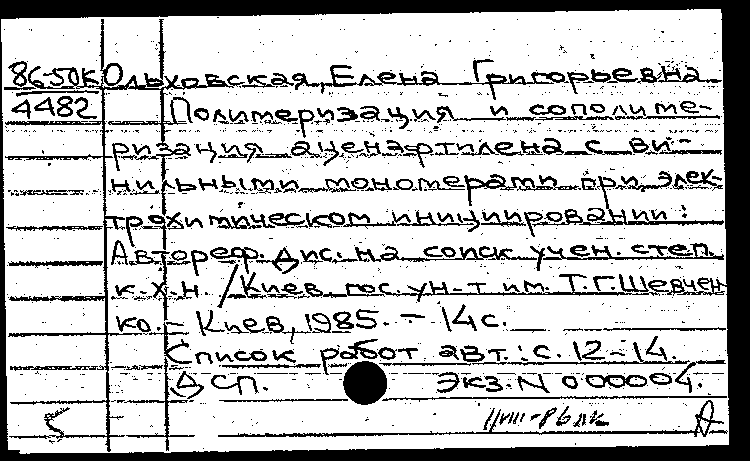 86-50К Ольховская, Елена Григорьевна.
4482 Полимеризация и сополиме-
ризация аценафтилена с ви-
нильными мономерами при элек-
трохимическом инициировании:
Автореф. дис. на соиск учен. степ.
к.х.н. / Киев. гос. ун-т им. Т.Г.Шевчен
ко. – Киев, 1985. – 14 с.
Список работ авт.: с. 12-14.
ДСП. Экз. N 000004.
5 А